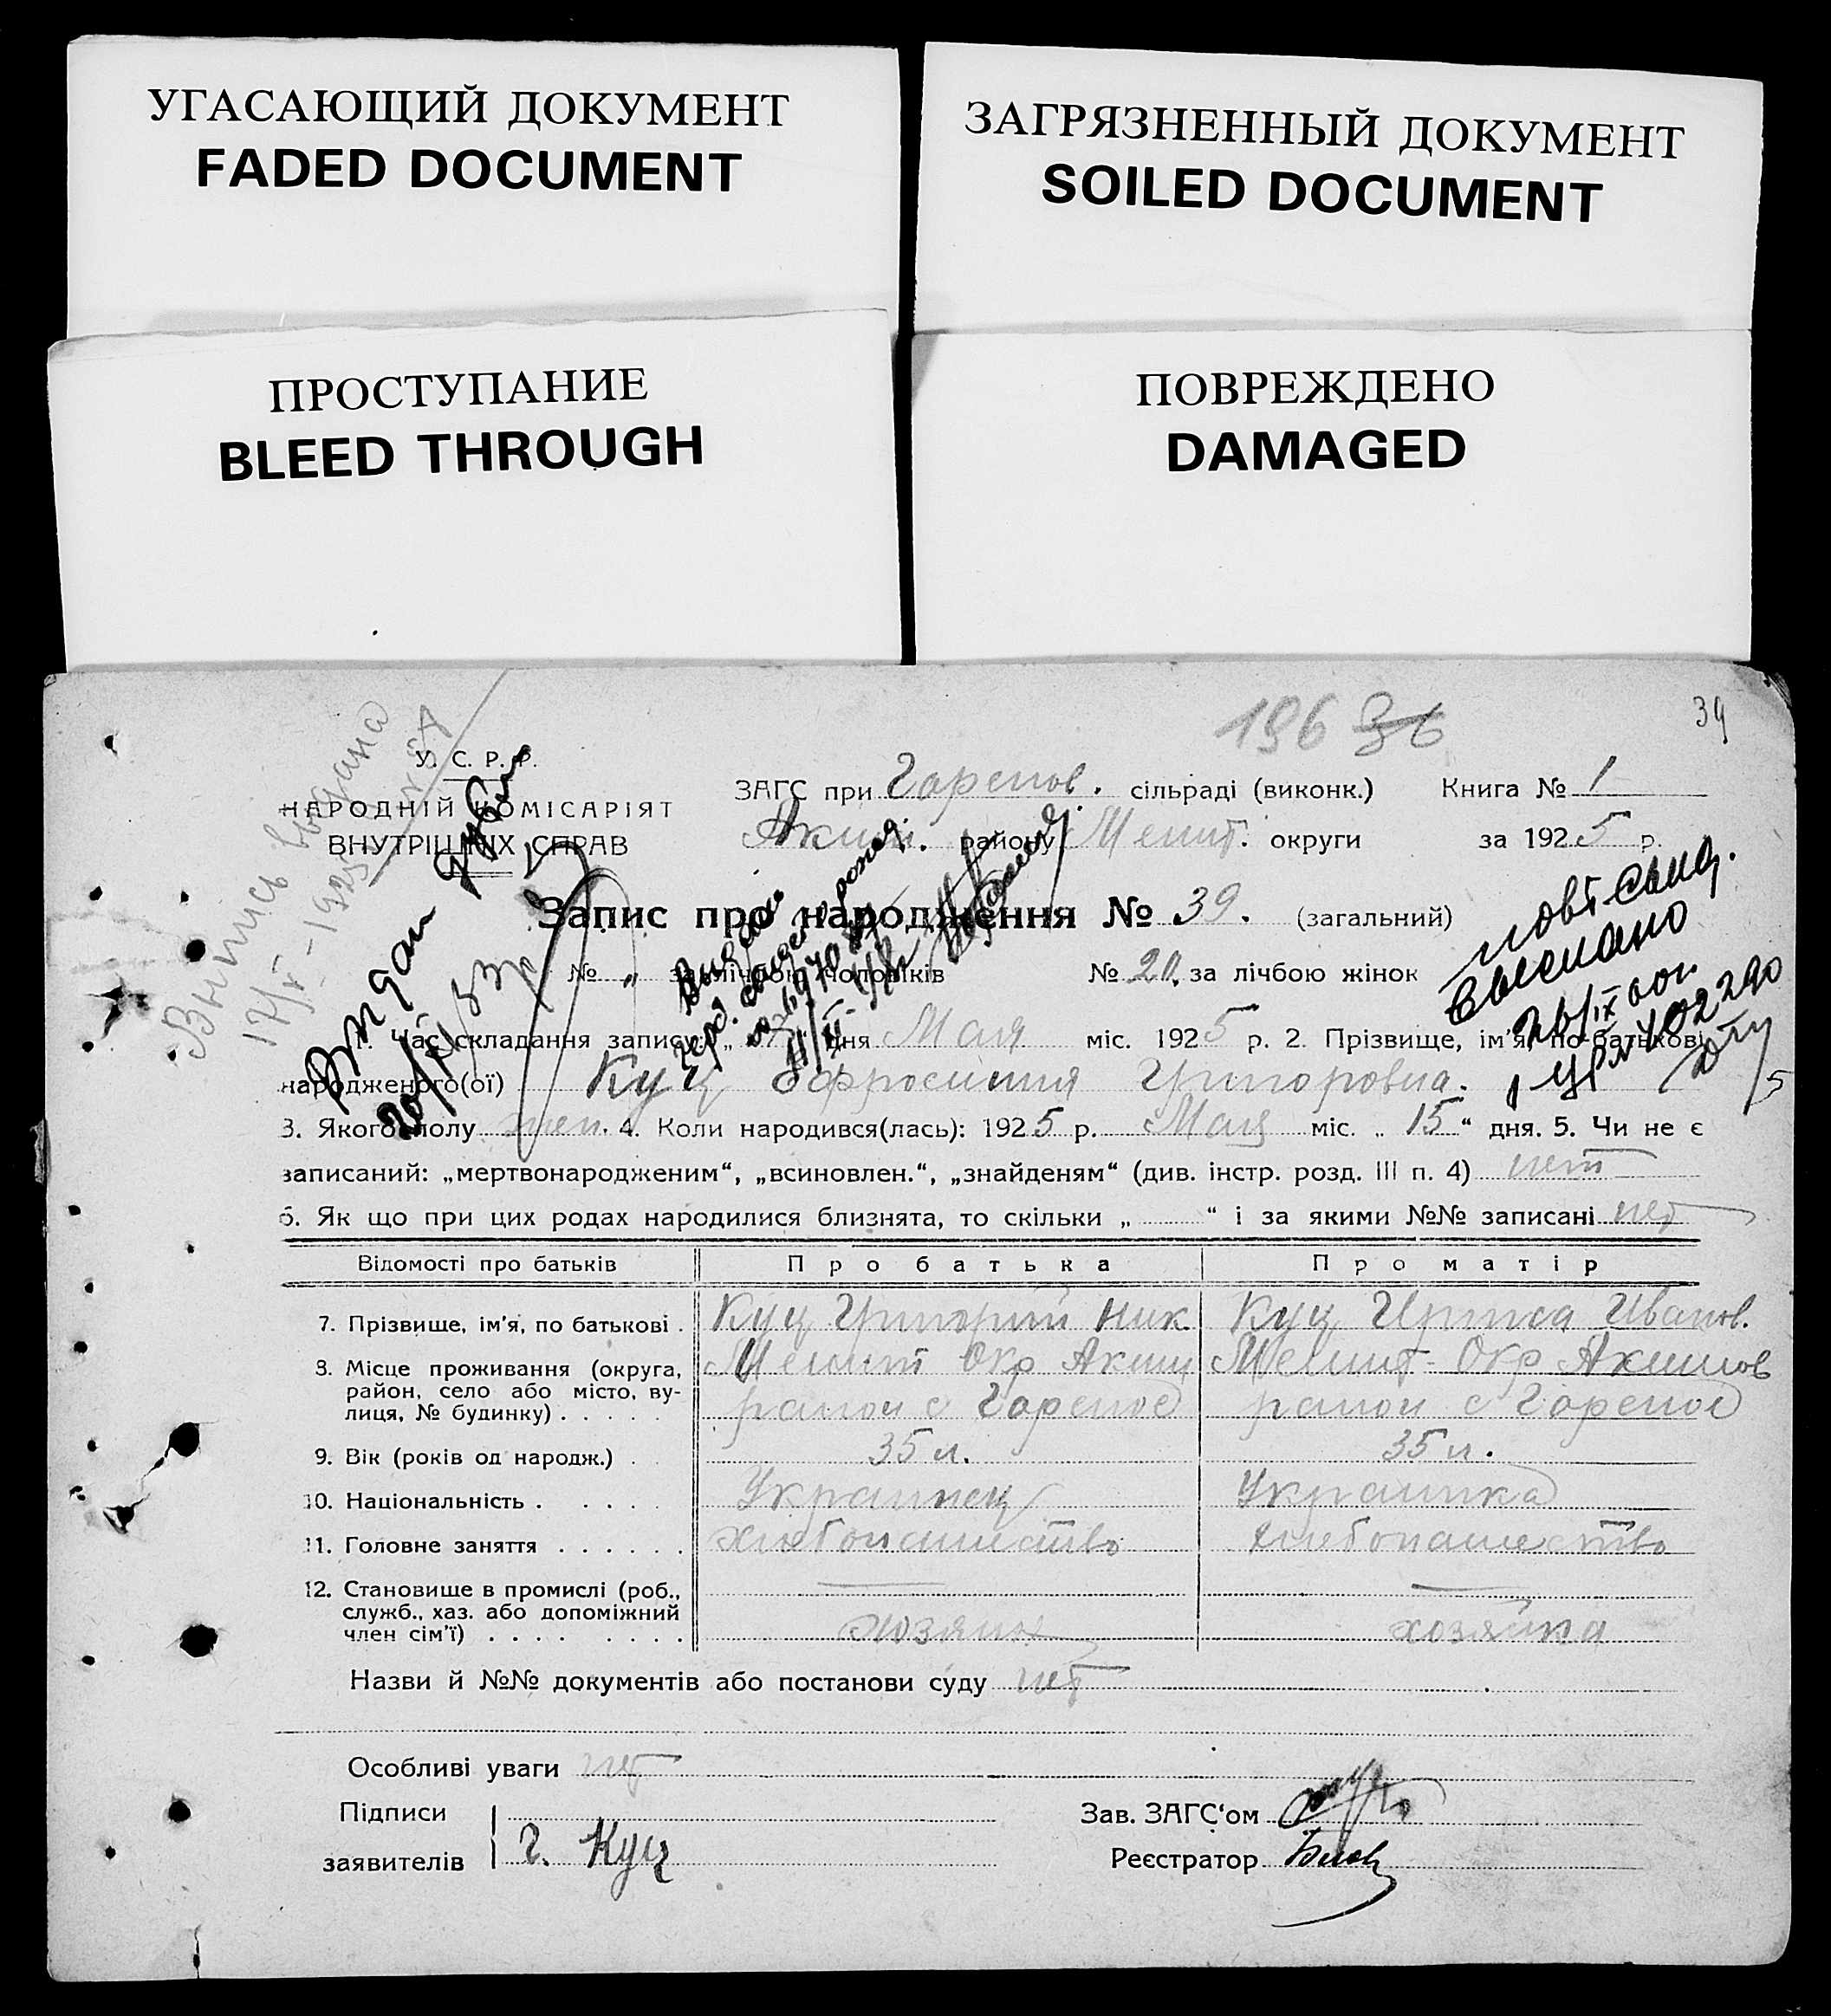 УГАСАЮЩИЙ ДОКУМЕНТ
FADED DOCUMENT
ЗАГРЯЗНЕННЫЙ ДОКУМЕНТ
SOILED DOCUMENT
ПРОСТУПАНИЕ
BLEED THROUGH
ПОВРЕЖДЕНО
DAMAGED
196 36
39
Выпись выдана
У. С. Р. Р.
НАРОДНІЙ КОМІСАРІЯТ
ВНУТРІШНІХ СПРАВ
ЗАГС при Горепов. сільраді (виконк.) Книга № 1
Аким. району Мелит. округи за 1925 р.
Запис про народження № 39. (загальний)
№ „ за лічбою чоловіків № 20. за лічбою жінок
повт. свид.
выслано
1. Час складання запису: „ дня Мая міс. 1925 р. 2. Прізвище, ім'я, по-батькові
народженого(ої) Куц Ефросиния Григоровна.
3. Якого полу жен. 4. Коли народився(лась): 1925 р. Мая міс. „ 15 “ дня. 5. Чи не є
записаний: „мертвонародженим“, „всиновлен.“, „знайденям“ (див. інстр. розд. III п. 4) нет
6. Як що при цих родах народилися близнята, то скільки „ “ і за якими №№ записані нет
Відомості про батьків Про батька Про матір
7. Прізвище, ім'я, по батькові . Куц Григорий Ник. Куц Ирина Иванов.
8. Місце проживання (округа, район, село або місто, ву-лиця, № будинку) . . . . . Мелит Окр Аким район с Горепов Мелит- Окр Акимов район с Горепов
9. Вік (років од народж.) . . 35 л. 35 л.
10. Національність . . . . . Украинец Украинка
11. Головне заняття . . . . . . хлебопашество хлебопашество
12. Становище в промислі (роб., служб., хаз. або допоміжний член сім'ї) . . . . . . . . хозяин хозяйка
Назви й №№ документів або постанови суду нет
Особливі уваги нет
Підписи
заявителів Г. Куц
Зав. ЗАГС‘ом
Реєстратор